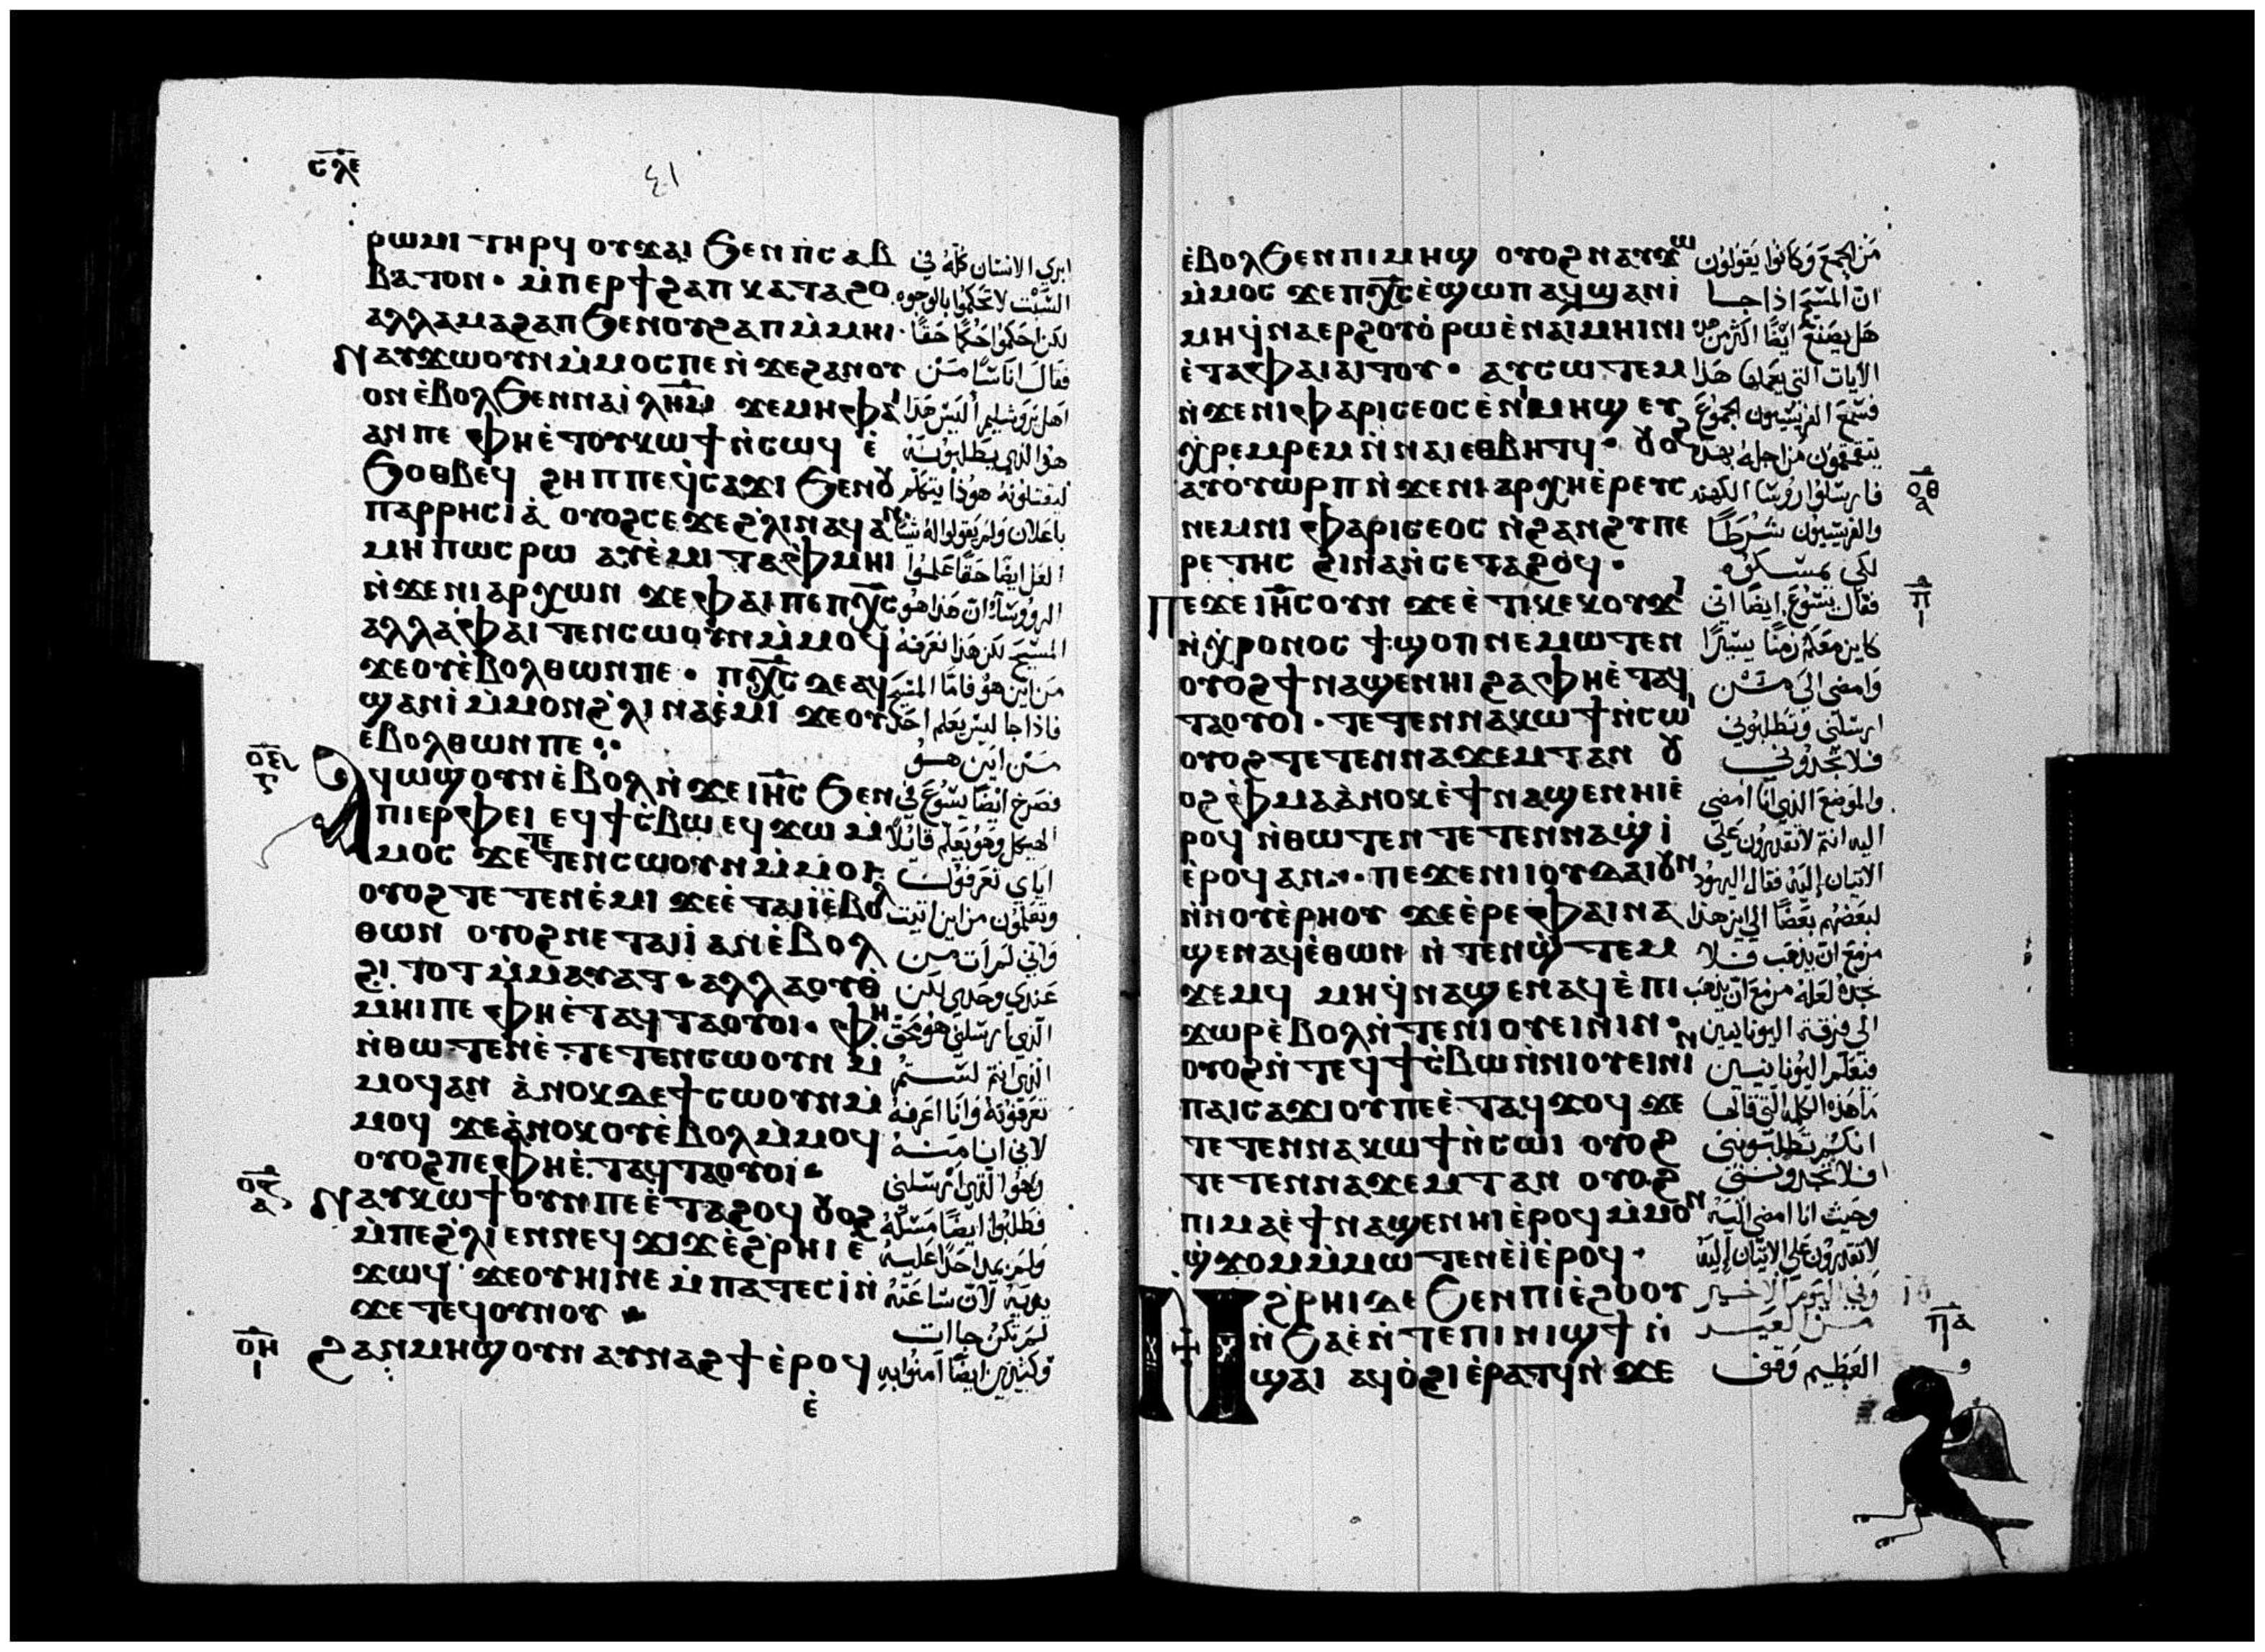 ⲥⲗⲉ
٤١
ⲣⲱⲙⲓ ⲧⲏⲣϥ ⲟⲩϫⲁⲓ ϧⲉⲛⲡ̀ⲥⲁⲃ
ⲃⲁⲧⲟⲛ · ⲙ̀ⲡⲉⲣϯϩⲁⲡ ⲕⲁⲧⲁϩⲟ
ⲁⲗⲗⲁⲙⲁϩⲁⲡ ϧⲉⲛⲟⲩϩⲁⲡ ⲙ̀ⲙⲏⲓ ·
ⲛⲁⲩϫⲱⲟⲩⲛ ⲙ̀ⲙⲟⲥⲡⲉ ⲛ̀ϫⲉϩⲁⲛⲟⲩ
ⲟⲛ ⲉ̀ⲃⲟⲗϧⲉⲛⲛⲁⲓ̀ⲗⲏ̅ⲙ̅ ϫⲉⲙⲏⲫⲁⲓ
ⲁⲛⲡⲉ ⲫⲏⲉ̀ⲧⲟⲩⲕⲱϯ ⲛ̀ⲥⲱϥ ⲉ̀
ϧⲟⲑⲃⲉϥ ϩⲏⲡⲡⲉϥ̀ⲥⲁϫⲓ ϧⲉⲛⲟⲩ
ⲡⲁⲣⲣⲏⲥⲓⲁ̀ ⲟⲩⲟϩⲥⲉϫⲉϩ̀ⲗⲓⲛⲁϥⲁⲛ
ⲙⲏⲡⲱⲥⲣⲱ ⲁⲩⲉ̀ⲙⲓ ⲧⲁⲫ̀ⲙⲏⲓ
ⲛ̀ϫⲉⲛⲓⲁⲣⲭⲱⲛ ϫⲉⲫⲁⲓⲡⲉⲡⲭ̅ⲥ̅
ⲁⲗⲗⲁⲫⲁⲓ ⲧⲉⲛⲥⲱⲟⲩⲛ ⲙ̀ⲙⲟϥ
ϫⲉⲟⲩⲉ̀ⲃⲟⲗⲑⲱⲛⲡⲉ · ⲡⲭ̅ⲥ̅ ⲇⲉⲁϥ
ϣⲁⲛⲓ̀ ⲙ̀ⲙⲟⲛϩ̀ⲗⲓⲛⲁⲉ̀ⲙⲓ ϫⲉⲟⲩ
ⲉ̀ⲃⲟⲗⲑⲱⲛⲡⲉ
ⲟⲉ
ⲁϥⲱϣⲟⲩⲛ ⲉ̀ⲃⲟⲗ ⲛ̀ϫⲉⲓⲏ̅ⲥ̅ ϧⲉⲛ
ⲡⲓⲉⲣⲫⲉⲓ ⲉϥϯⲥ̀ⲃⲱ ⲉϥϫⲱ ⲙ̀
ⲙⲟⲥ ϫⲉⲧⲉⲧⲉⲛⲥⲱⲟⲩⲛ ⲙ̀ⲙⲟⲓ
ⲟⲩⲟϩ ⲧⲉⲧⲉⲛⲉ̀ⲙⲓ ϫⲉⲉ̀ⲧⲁⲓⲓ̀ⲉ̀ⲃⲟⲗ
ⲑⲱⲛ ⲟⲩⲟϩⲛⲉⲧⲁⲓⲓ̀ ⲁⲛⲉ̀ⲃⲟⲗ
ϩⲓⲧⲟⲧ ⲙ̀ⲙⲁⲩⲁⲧ · ⲁⲗⲗⲁⲟⲩⲑ̀
ⲙⲏⲓⲡⲉ ⲫⲏⲉ̀ⲧⲁϥⲧⲁⲟⲩⲟⲓ · ⲫⲏ
ⲛ̀ⲑⲱⲧⲉⲛⲉ̀ⲧⲉⲧⲉⲛⲥⲱⲟⲩⲛ ⲙ̀
ⲙⲟϥⲁⲛ ⲁ̀ⲛⲟⲕⲇⲉϯⲥⲱⲟⲩⲛ ⲙ̀
ⲙⲟϥ ϫⲉⲁ̀ⲛⲟⲕⲟⲩⲉ̀ⲃⲟⲗⲙ̀ⲙⲟϥ
ⲟⲩⲟϩⲡⲉⲫⲏⲉ̀ⲧⲁϥⲧⲁⲟⲩⲟⲓ
ⲛⲁⲩⲕⲱϯⲟⲩⲛⲡⲉ ⲉ̀ⲧⲁϩⲟϥ ⲟⲩⲟϩ
ⲙ̀ⲡⲉϩ̀ⲗⲓⲉⲛⲛⲉϥϫⲓϫ ⲉ̀ϩ̀ⲣⲏⲓ ⲉ̀
ϫⲱϥ ϫⲉⲟⲩⲏⲓⲛⲉ ⲙ̀ⲡⲁⲧⲉⲥⲓ̀ⲛ̀
ϫⲉⲧⲉϥⲟⲩⲛⲟⲩ
ⲟⲏ
ϩⲁⲛⲙⲏϣⲟⲩⲛ ⲁⲩⲛⲁϩϯ ⲉ̀ⲣⲟϥ
ⲉ̀
ابري الانسان كله في
السبت لا تحكموا بالوجوه
لكن احكموا حكمًا حقًا
فقال اناسًا من
اهل يروشليم أليس هذا
هوا الذي يطلبونه
ليقتلونه هوذا يتكلم
باعلان ولم يقولوا له شيًا
العل ايضًا حقًا علموا
الروسا ان هذا هو
المسيح لكن هذا نعرفه
من اين هو فاما المسيح
فاذا جا ليس يعلم احد
من اين هو
فصرخ ايضًا يسوع في
الهيكل وهو يعلم قايلًا
اياي تعرفون
وتعلمون من اين اتيت
واني لم ات من
عندي وحدي لكن
الذي ارسلني هو محق
الذي انتم لستم
تعرفونه وانا اعرفه
لاني انا منه
وهو الذي ارسلني
فطلبوا ايضًا مسكه
ولم يمد احدًا عليه
يديه لان ساعته
لم تكن جات
وكثيرين ايضًا امنوا به
ⲉ̀ⲃⲟⲗϧⲉⲛⲡⲓⲙⲏϣ ⲟⲩⲟϩⲛⲁⲩϫⲱ
ⲙ̀ⲙⲟⲥ ϫⲉⲡⲭ̅ⲥ̅ⲉ̀ϣⲱⲡ ⲁϥϣⲁⲛⲓ̀
ⲙⲏϥ̀ⲛⲁⲉⲣϩⲟⲩⲟ̀ ⲣⲱⲉ̀ⲛⲁⲓⲙⲏⲓⲛⲓ
ⲉ̀ⲧⲁⲫⲁⲓⲁⲓⲧⲟⲩ · ⲁⲩⲥⲱⲧⲉⲙ
ⲛ̀ϫⲉⲛⲓⲫⲁⲣⲓⲥⲉⲟⲥ ⲉ̀ⲛⲓⲙⲏϣ ⲉⲩ
ⲭ̀ⲣⲉⲙⲣⲉⲙ ⲛ̀ⲛⲁⲓⲉⲑⲃⲏⲧϥ · ⲟⲩⲟϩ
ⲁⲩⲟⲩⲱⲣⲡ ⲛ̀ϫⲉⲛⲓⲁⲣⲭⲏⲉ̀ⲣⲉⲩⲥ
ⲛⲉⲙⲛⲓⲫⲁⲣⲓⲥⲉⲟⲥ ⲛ̀ϩⲁⲛϩⲩⲡⲉ
ⲣⲉⲧⲏⲥ ϩⲓⲛⲁⲛ̀ⲥⲉⲧⲁϩⲟϥ ·
ⲡⲉϫⲉⲓⲏ̅ⲥ̅ⲟⲩⲛ ϫⲉⲉ̀ⲧⲓⲕⲉⲕⲟⲩϫⲓ
ⲛ̀ⲭⲣⲟⲛⲟⲥ ϯϣⲟⲡ ⲛⲉⲙⲱⲧⲉⲛ
ⲟⲩⲟϩϯⲛⲁϣⲉⲛⲏⲓ ϩⲁⲫⲏⲉ̀ⲧⲁϥ
ⲧⲁⲟⲩⲟⲓ · ⲧⲉⲧⲉⲛⲛⲁⲕⲱϯⲛ̀ⲥⲱⲓ
ⲟⲩⲟϩⲧⲉⲧⲉⲛⲛⲁϫⲉⲙⲧⲁⲛ ⲟⲩ
ⲟϩ ⲫ̀ⲙⲁⲁ̀ⲛⲟⲕⲉ̀ϯⲛⲁϣⲉⲛⲏⲓⲉ̀
ⲣⲟϥ ⲛ̀ⲑⲱⲧⲉⲛ ⲧⲉⲧⲉⲛⲛⲁϣ̀ⲓ̀
ⲉ̀ⲣⲟϥⲁⲛ · ⲡⲉϫⲉⲛⲓⲓⲟⲩⲇⲁⲓⲟⲩⲛ
ⲛ̀ⲛⲟⲩⲉ̀ⲣⲏⲟⲩ ϫⲉⲉ̀ⲣⲉⲫⲁⲓⲛⲁ
ϣⲉⲛⲁϥⲉ̀ⲑⲱⲛ ⲛ̀ⲧⲉⲛϣ̀ⲧⲉⲙ
ϫⲉⲙϥ ⲙⲏϥ̀ⲛⲁϣⲉⲛⲁϥ ⲉ̀ⲡⲓ
ϫⲱⲣ ⲉ̀ⲃⲟⲗⲛ̀ⲧⲉⲛⲓⲟⲩⲉⲓⲛⲓⲛ ·
ⲟⲩⲟϩⲛ̀ⲧⲉϥϯⲥ̀ⲃⲱⲛ̀ⲛⲓⲟⲩⲉⲓⲛⲓⲛ
ⲡⲁⲓⲥⲁϫⲓⲟⲩⲡⲉ ⲉ̀ⲧⲁϥϫⲟϥ ϫⲉ
ⲧⲉⲧⲉⲛⲛⲁⲕⲱϯⲛ̀ⲥⲱⲓ ⲟⲩⲟϩ
ⲧⲉⲧⲉⲛⲛⲁϫⲉⲙⲧ ⲁⲛ ⲟⲩⲟϩ
ⲡⲓⲙⲁⲉ̀ϯⲛⲁϣⲉⲛⲏⲓⲉ̀ⲣⲟϥ ⲙ̀ⲙⲟⲛ
ϣ̀ϫⲟⲙⲙ̀ⲙⲱⲧⲉⲛⲉ̀ⲓ̀ⲉ̀ⲣⲟϥ ·
ⲛ̀ϩ̀ⲣⲏⲓⲇⲉ ϧⲉⲛⲡⲓⲉ̀ϩⲟⲟⲩ
ⲛ̀ϧⲁⲉ̀ⲛ̀ⲧⲉⲡⲓⲛⲓϣϯ ⲛ̀
ϣⲁⲓ ⲁϥⲟ̀ϩⲓⲉ̀ⲣⲁⲧϥⲛ̀ϫⲉ
من الجمع وكانوا يقولون
ان المسيح اذا جا
هل يصنع ايضًا اكثر من
الايات التي يعملها هذا
فسمع الفريسيون الجموع
يتقمقمون من اجله بهذا
فارسلوا روسا الكهنه
والفريسيون شرطًا
لكي يمسكوه
فقال يسوع ايضًا اني
كاين معكم زمنًا يسيرًا
وامضي الى من
ارسلني وتطلبوني
فلا تجدوني
والموضع الذي انا امضي
اليه انتم لا تقدرون على
الاتيان إليه فقال اليهود
لبعضهم بعضًا الي اين هذا
مزمع ان يذهب فلا
نجده لعله مزمع ان يذهب
الى فرقة اليونانيين
فيعلم اليونانيين
ما هذه الكلمه التي قالها
انكم تطلبونني
فلا تجدونني
وحيث انا امضي إليه
لا تقدرون على الاتيان إليه
وفي اليوم الاخير
من العيد
العظيم وقف
ⲟⲑ
ⲡ
ⲡⲁ